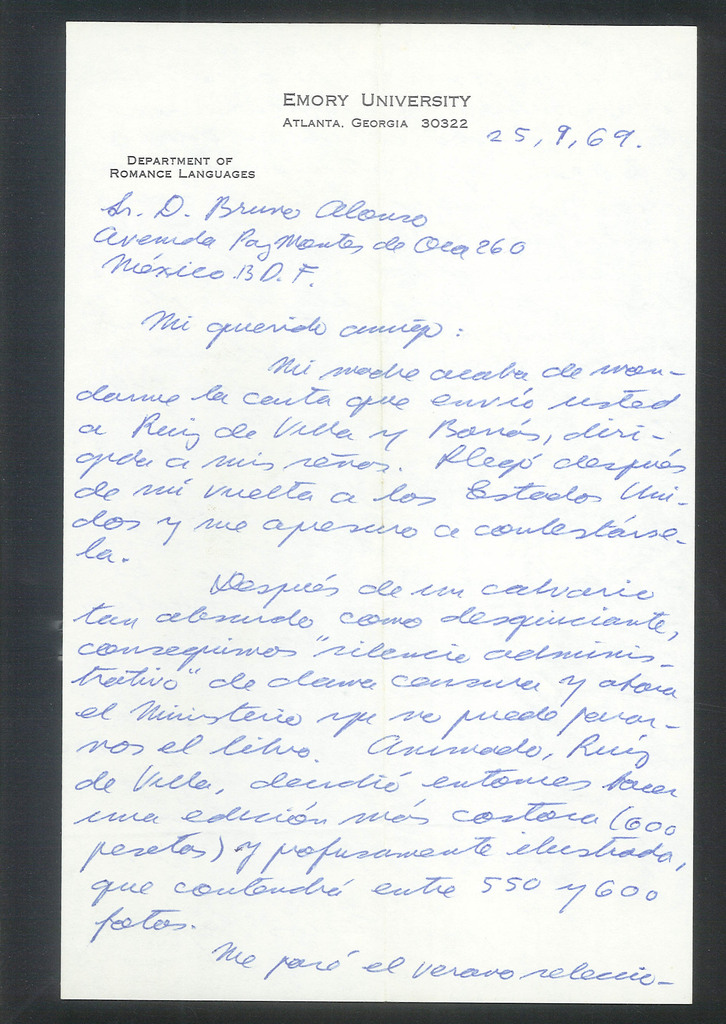 EMORY UNIVERSITY
ATLANTA, GEORGIA 30322
25, 9, 69.
DEPARTMENT OF
ROMANCE LANGUAGES
Sr. D. Bruno Alonso
Avenida Paz Montes de Oca 260
México 13 D. F.
Mi querido amigo:
Mi madre acaba de man-
darme la carta que envío usted
a Ruiz de Villa y Borrás, diri-
gida a mis señas. Llegó después
de mi vuelta a los Estados Uni-
dos y me apresuro a contestárse-
la.
Después de un calvario
tan absurdo como desquiciante,
conseguimos "silencio adminis-
trativo" de dama censura y ahora
el Ministerio ya no puede parar-
nos el libro. Animado, Ruiz
de Villa, decidió entonces hacer
una edición más costosa (600
pesetas) y profusamente ilustrada,
que contendrá entre 550 y 600
fotos.
Me pasé el verano seleccio-